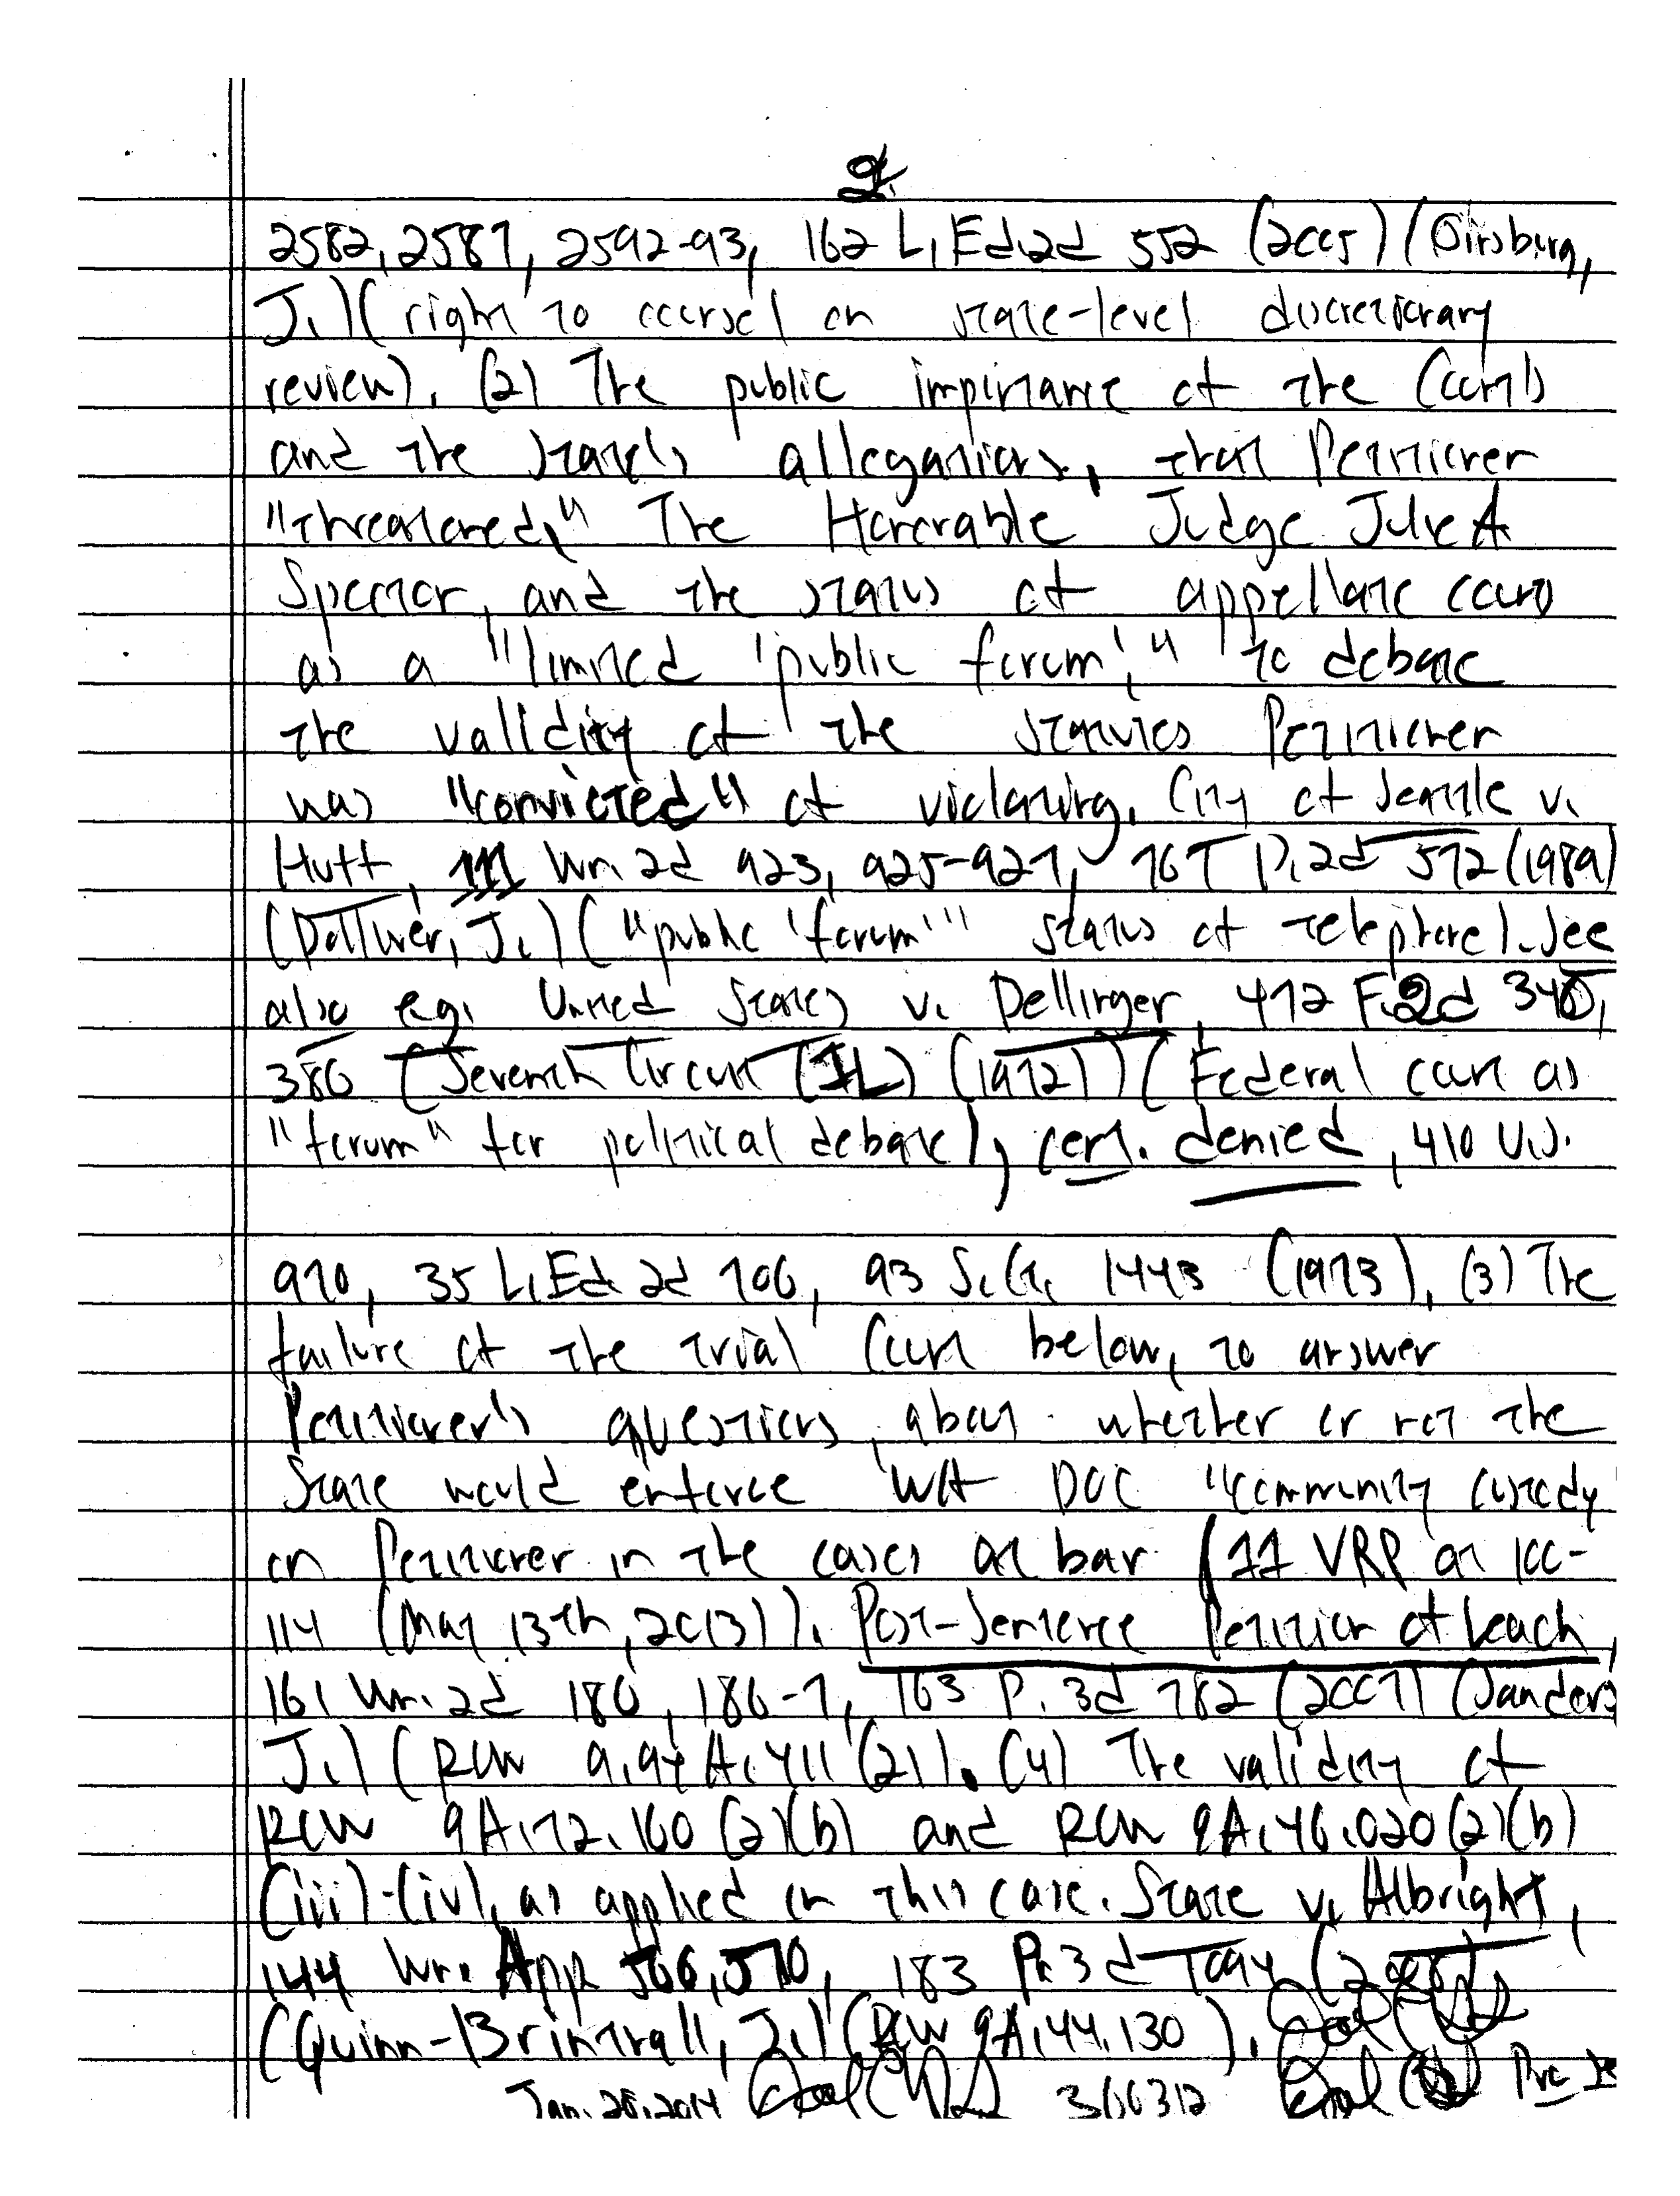 2.
2582, 2587, 2592-93, 162 L.Ed.2d 552 (2005) (Ginsburg,
J.) (right to counsel on state-level discretionary
review). (2) The public importance of the Court's
and the State's allegations, that Petitioner
"threatened," The Honorable Judge Julie A
Spector, and the status of appellate courts
as a "limited 'public forum'," to debate
the validity of the statutes Petitioner
was "convicted" of violating. City of Seattle v.
Huff, 111 Wn. 2d 923, 925-927, 767 P.2d 572 (1989)
(Dolliver, J.) ("public 'forum'" status of telephone). See
also e.g. United States v. Dellinger, 472 F.2d 340,
386 (Seventh Circuit (IL) (1972)) (Federal court as
"forum" for political debate), cert. denied, 410 U.S.
970, 35 L.Ed. 2d 706, 93 S.Ct. 1443 (1973). (3) The
failure of the trial Court below, to answer
Petitioner's questions, about whether or not the
State would enforce WA DOC "community custody
on Petitioner in the cases at bar (11 VRP at 100-
114 (May 13th, 2013)). Post-Sentence Petition of Leach,
161 Wn. 2d 180, 186-7, 163 P. 3d 782 (2007) (Sanders
J.) (RCW 9.94A.411(2)). (4) The validity of
RCW 9A.72.160(2)(b) and RCW 9A.46.020(2)(b)
(iii)-(iv), as applied in this case. State v. Albright,
144 Wn. App 566, 570, 183 P. 3d 1094 (2008)
(Quinn-Brintnall, J.) (RCW 9A.44.130).
Jan. 28, 2014 366312 Pro Se